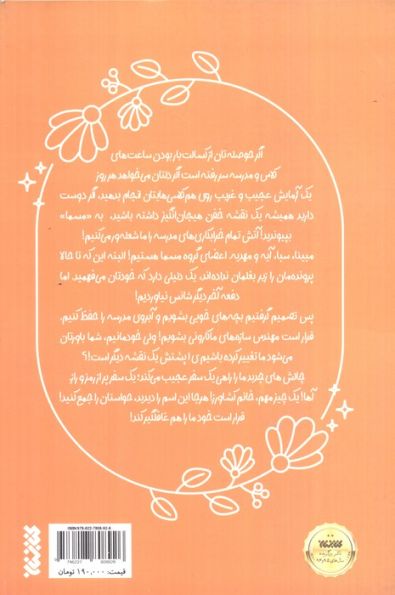 اگر حوصله‌تان از کسالت‌بار بودن ساعت‌های
کلاس و مدرسه سر رفته است اگر دلتان می‌خواهد هر روز
یک آزمایش عجیب و غریب روی هم‌کلاسی‌هایتان انجام بدهید، اگر دوست
دارید همیشه یک نقشه خفن هیجان‌انگیز داشته باشید، به «مسما»
بپیوندید! آتش تمام خرابکاری‌های مدرسه را ما شعله‌ور می‌کنیم!
مبینا، سبا، آیه و مهدیه، اعضای گروه مسما هستیم! البته این که تا حالا
پرونده‌مان را زیر بغلمان نداده‌اند، یک دلیلی دارد که خودتان می‌فهمید، اما
دفعه آخر دیگر شانس نیاوردیم!
پس تصمیم گرفتیم بچه‌های خوبی بشویم و آبروی مدرسه را حفظ کنیم.
قرار است مهندس سازه‌های ماکارونی بشویم! ولی خودمانیم، شما باورتان
می‌شود ما تغییر کرده باشیم یا پشتش یک نقشه دیگر است!؟
چالش های جدید ما را راهی یک سفر عجیب می‌کند؛ یک سفر پر از رمز و راز.
آها! یک چیز مهم، خانم کشاورز! هرجا این اسم را دیدید، حواستان را جمع کنید!
قرار است خود ما را هم غافلگیر کند!
قیمت: ۱۹۰,۰۰۰ تومان